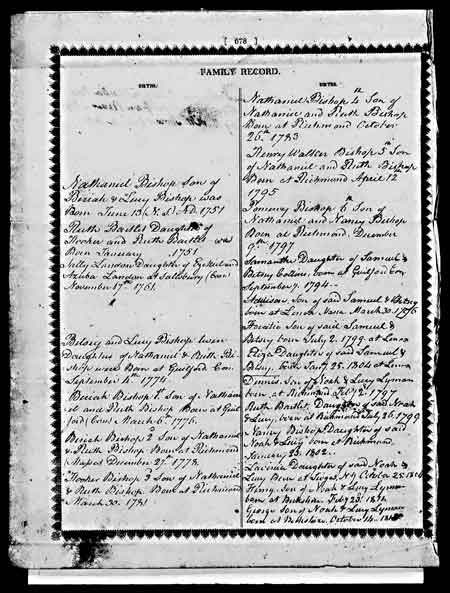 [ 678 ]
FAMILY RECORD.
BIRTHS.
Nathaniel Bishop Son of
Beriah & Lucy Bishop was
Born June 13 (N.S.) AD. 1751
Ruth Bartlet Daughter of
Hooker and Ruth Bartlet was
Born January 1751
Daughter of Ezekiel and
Landon at Salisbury (Con)
November 17th 1761.
Betsey and Lucy Bishop twin
Daughters of Nathaniel & Ruth Bi-
shop were Born at Guilford Con.
September 4th 1774.
Beriah Bishop 1st Son of Nathani
el and Ruth Bishop Born at Guil
ford (Con) March 6th 1776.
Beriah Bishop 2 Son of Nathaniel
& Ruth Bishop Born at Richmond
December 27th 1778.
Hooker Bishop 3 Son of Nathaniel
& Ruth Bishop Born at Richmond
March 30 1781
BIRTHS.
Nathaniel Bishop 4th Son of
Nathaniel and Ruth Bishop
Born at Richmond October
26th 1783
Henry Walker Bishop 5th Son
of Nathaniel and Ruth Bishop
Born at Richmond April 12th
1795
Pomeroy Bishop 6th Son of
Nathaniel and Nancy Bishop
Born at Richmond. December
9th 1797
Samantha Daughter of Samuel &
Betsey Collins, born at Guilford Con
September 1794
Son of said Samuel & Betsey
born at Lenox March 30 1796
Horatio Son of said Samuel &
Betsey born July 2. 1799 at Lenox
Eliza Daughter of said Samuel &
Betsey, born Jany 25. 1804 at Lenox
Dennis Son of Noah & Lucy Lyman
born at Richmond 1797
Ruth Bartlet Daughter of said Noah
& Lucy, born at Richmond July 26. 1799
Nancy Bishop Daughter of said
Noah & Lucy born at Richmond
January 23. 1802.
Lavinia Daughter of said Noah &
Lucy Born at NY October 25. 1804
Henry Son of Noah & Lucy Lyman
born at Berkshire July 23.
George Son of Noah & Lucy Lyman
born at Berkshire October 14.